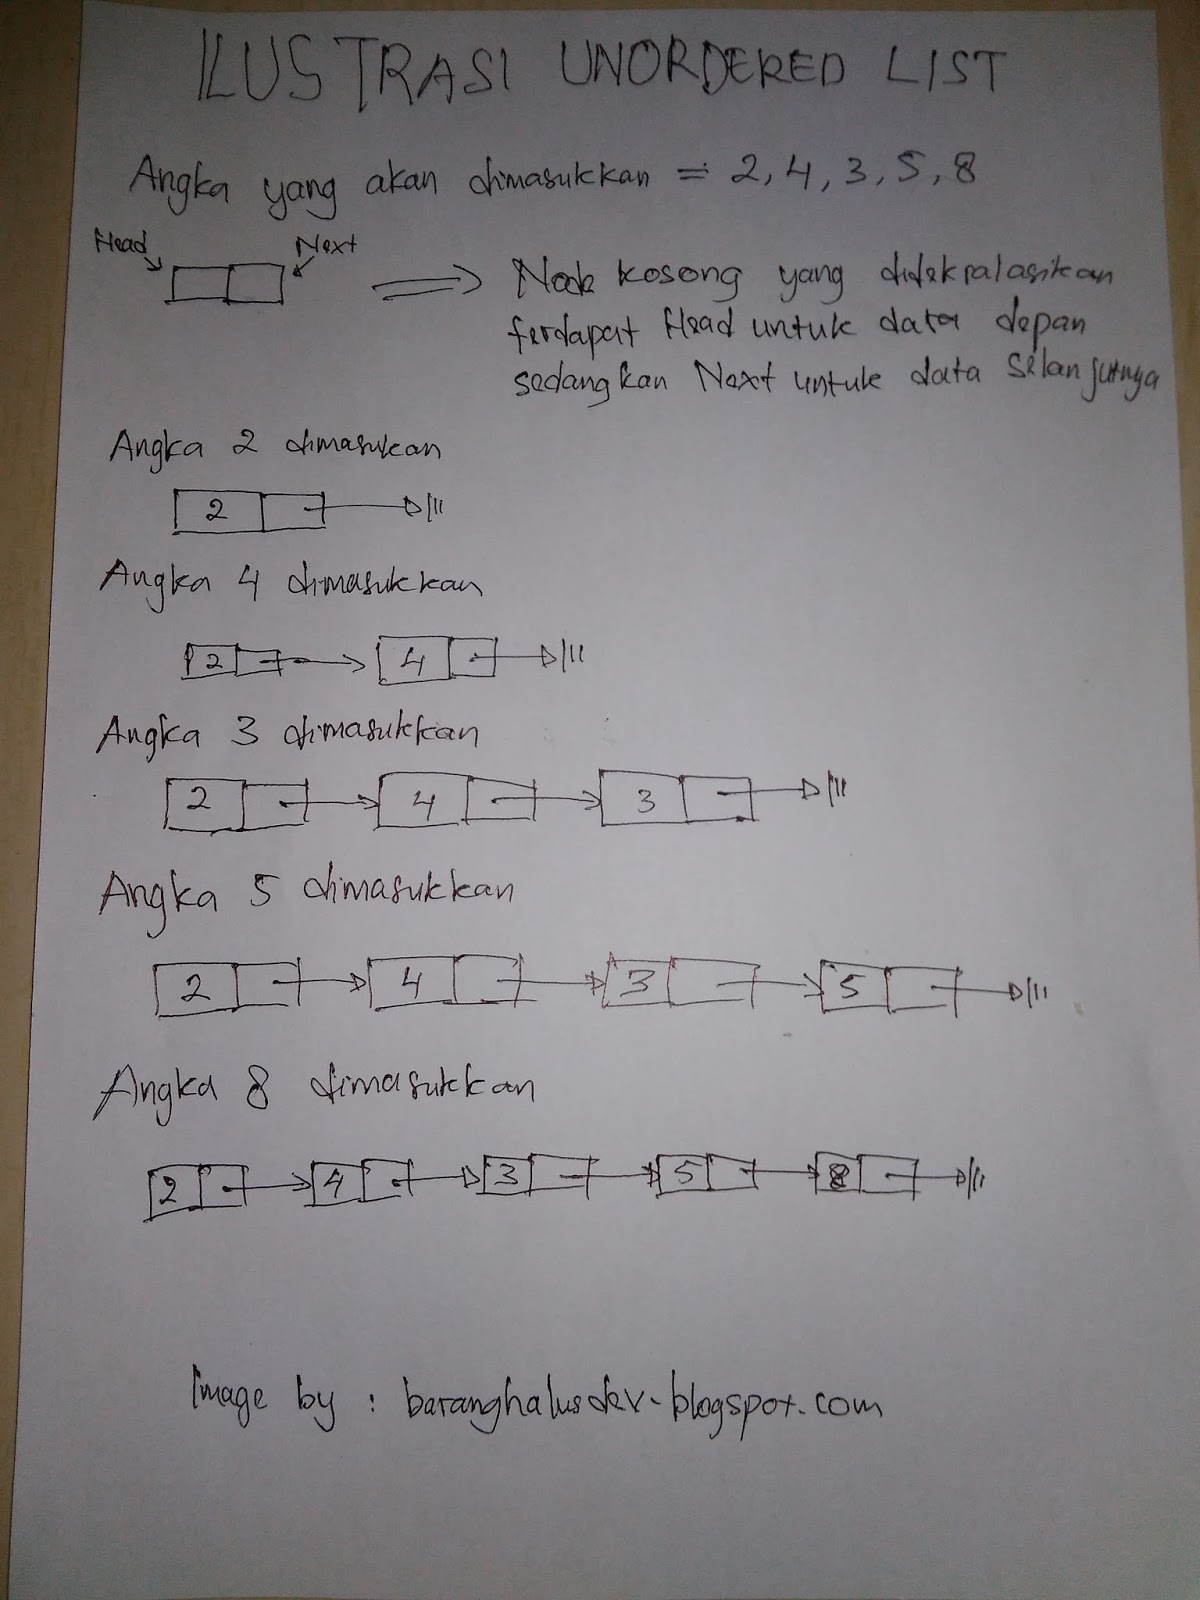 ILUSTRASI UNORDERED LIST
Angka yang akan dimasukkan = 2, 4, 3, 5, 8
Head Next
Node kosong yang didekralasikan
terdapat Head untuk data depan
sedangkan Next untuk data selanjutnya
Angka 2 dimasukan
2
Angka 4 dimasukkan
2 4
Angka 3 dimasukkan
2 4 3
Angka 5 dimasukkan
2 4 3 5
Angka 8 dimasukkan
2 4 3 5 8
Image by : baranghalusdev.blogspot.com